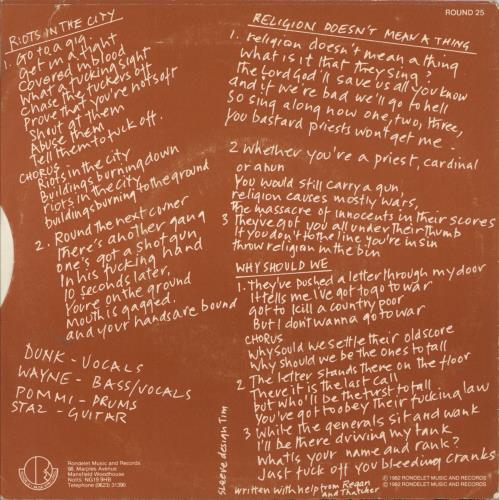 RIOTS IN THE CITY
1. Go to a gig
Get in a fight
Covered in blood
What a fucking sight
Chase the fuckers off
Prove that you're not soft
Shout at them
Abuse them
Tell them to fuck off.
CHORUS -
Riots in the city
Buildings burning down
riots in the city
buildings burning to the ground
2. Round the next corner
There's another gang
one's got a shotgun
In his fucking hand
10 seconds later,
You're on the ground
Mouth is gagged
and your hands are bound
DUNK - VOCALS
WAYNE - BASS/VOCALS
POMMI - DRUMS
STAZ - GUITAR
Rondelet Music and Records
98, Marples Avenue
Mansfield Woodhouse
Notts. NG19 9HB
Telephone (0623) 31390
sleeve design Tim
ROUND 25
RELIGION DOESN'T MEAN A THING
1. religion doesn't mean a thing
What is it that they sing?
The Lord God'll save us all you know
And if we're bad we'll go to hell
So sing along now one, two, three,
you bastard priests won't get me -
2 Whether you're a priest, cardinal
or a nun
You would still carry a gun,
religion causes mostly wars,
the massacre of innocents in their scores
3 They've got you all under their thumb
If you don't the line you're in sin
throw religion in the bin
WHY SHOULD WE
1. They've pushed a letter through my door
It tells me I've got to go to war
got to kill a country poor
But I don't wanna go to war
CHORUS
Why sould we settle their old score
Why should we be the ones to fall
2 The letter stands there on the floor
There it is the last call
but who'll be the first to fall
You've got to obey their fucking law
3 While the generals sit and wank
I'll be there driving my tank
What's your name and rank?
Just fuck off you bleeding cranks
written with help from Regan
and Thatcher
℗ 1982 RONDELET MUSIC & RECORDS
© 1982 RONDELET MUSIC & RECORDS